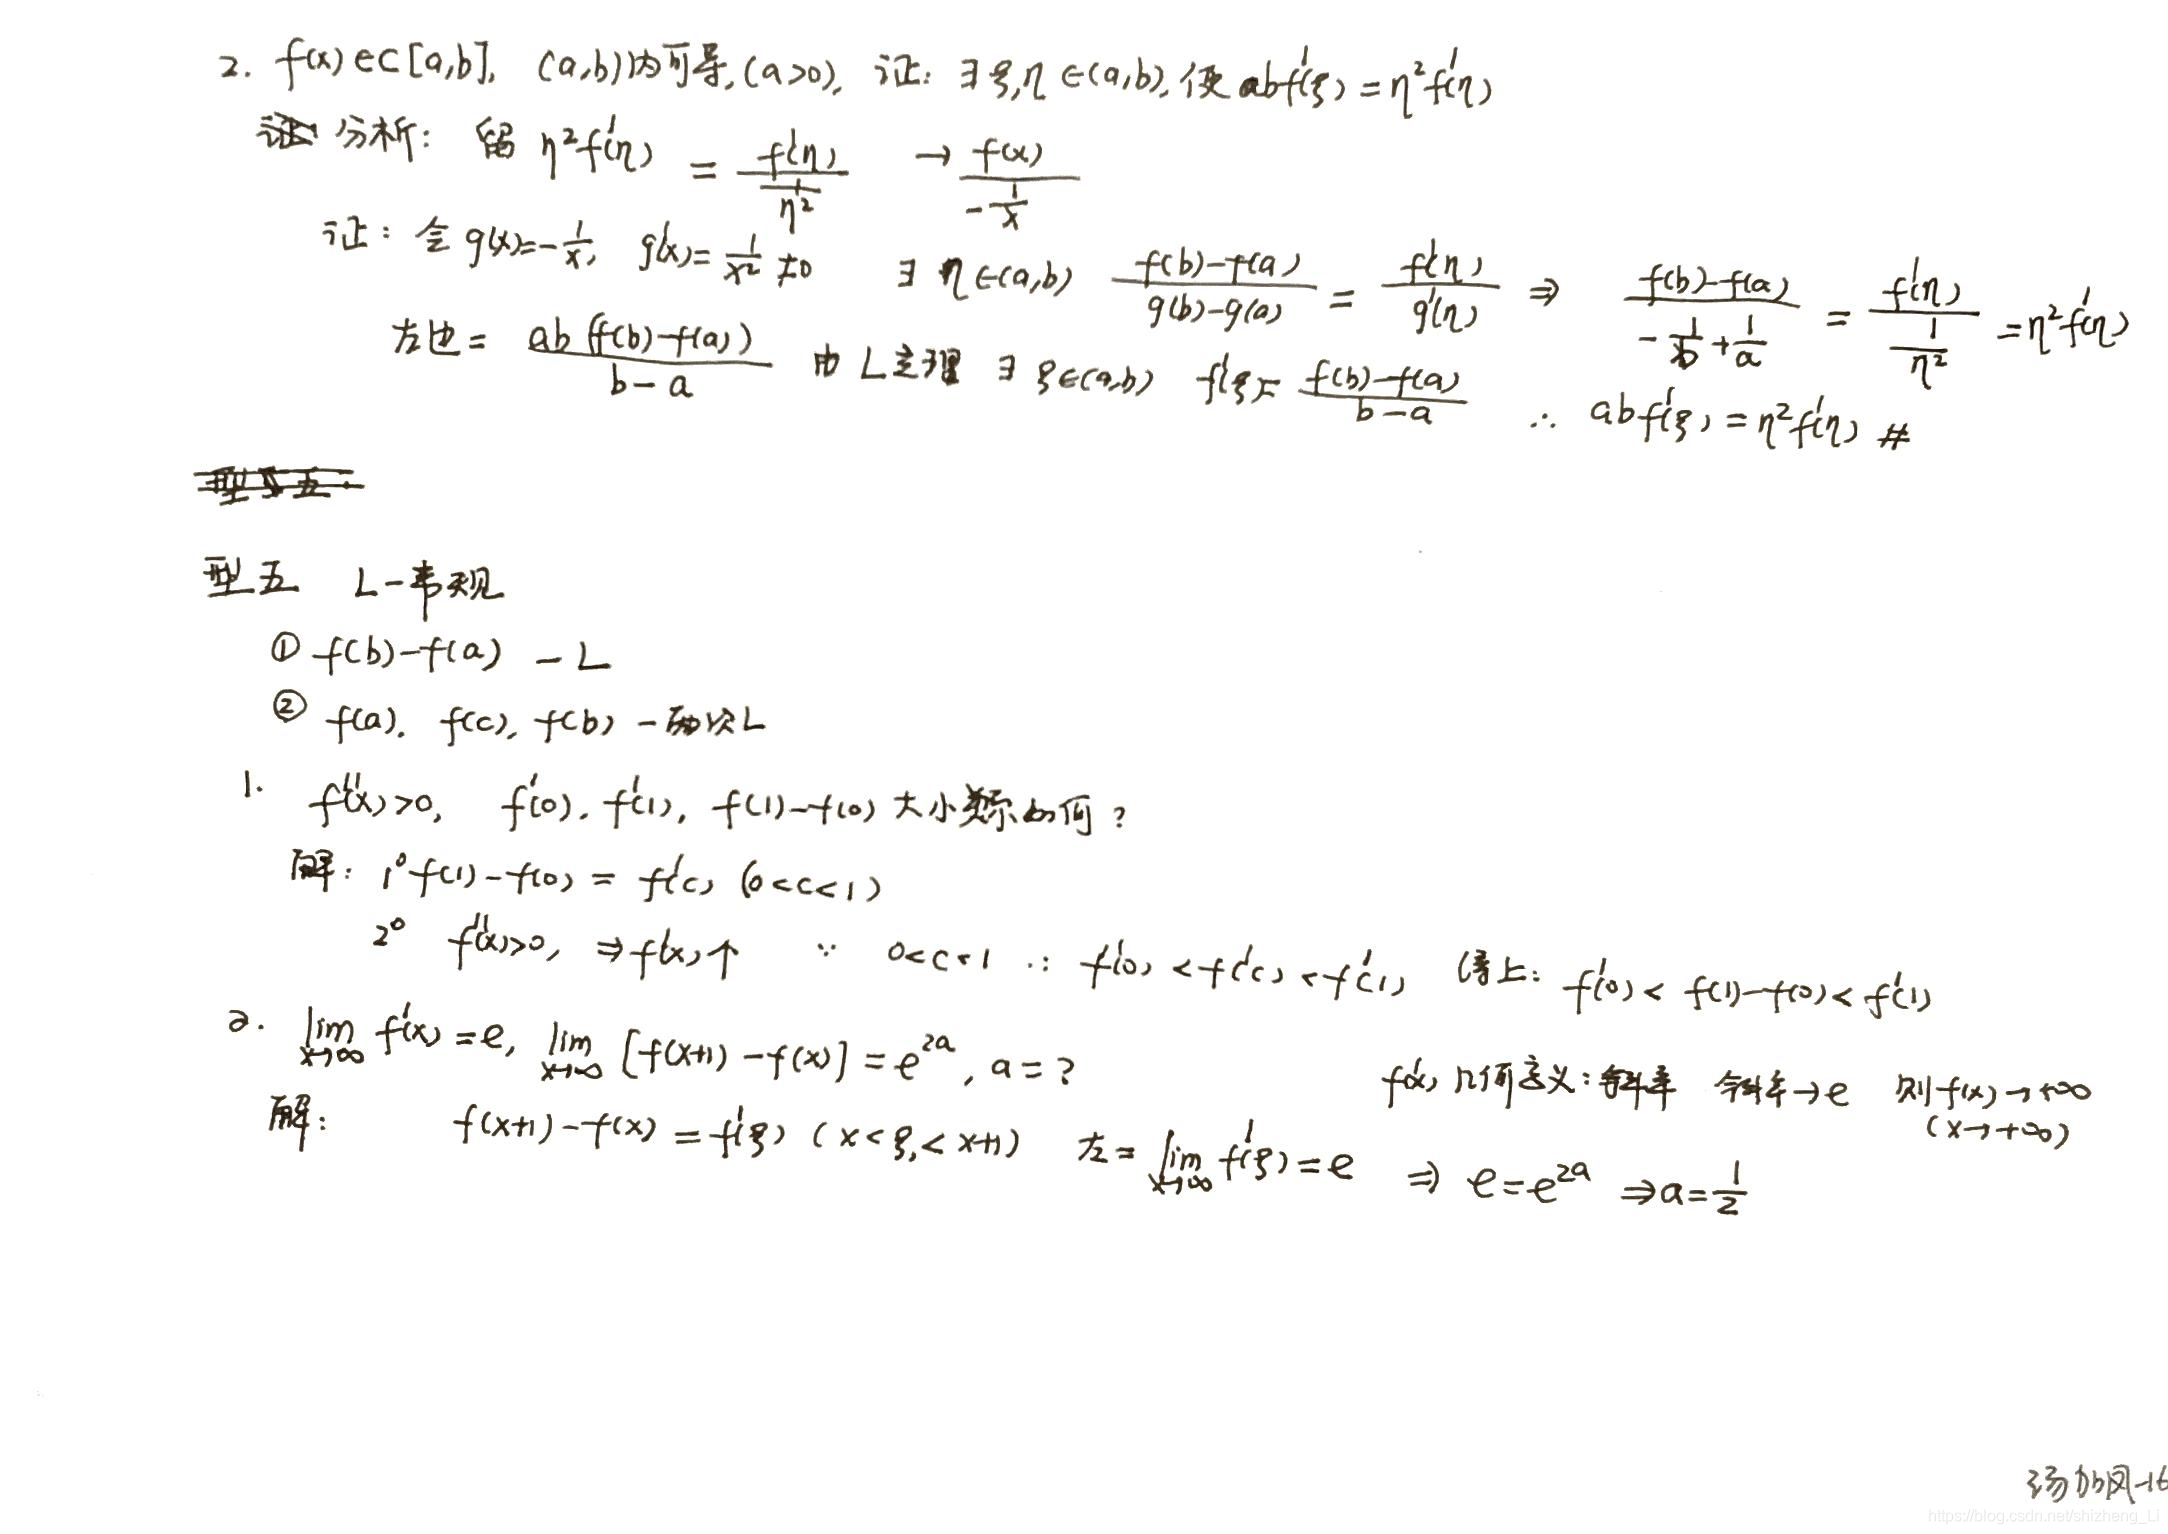 2. f(x)∈C[a,b], (a,b)内可导,(a>0), 证: ∃ξ,η∈(a,b), 使 abf'(ξ)=η²f'(η)
分析: 留 η²f'(η) = f'(η)/(1/η²) → f(x)/(-1/x)
证: 令 g(x)=-1/x, g'(x)=1/x²≠0 ∃η∈(a,b) (f(b)-f(a))/(g(b)-g(a)) = f'(η)/g'(η) ⇒ (f(b)-f(a))/(-1/b+1/a) = f'(η)/(1/η²) =η²f'(η)
左边= ab(f(b)-f(a))/(b-a) 由L定理 ∃ξ∈(a,b) f'(ξ)=(f(b)-f(a))/(b-a) ∴ abf'(ξ)=η²f'(η) #
型五:
型五 L-常规
① f(b)-f(a) -L
② f(a). f(c), f(b) -两次L
1. f''(x)>0, f'(0). f'(1), f(1)-f(0) 大小关系如何?
解: 1⁰ f(1)-f(0) = f'(c) (0<c<1)
2⁰ f''(x)>0, ⇒f'(x)↑ ∵ 0<c<1 ∴ f'(0)<f'(c)<f'(1) 综上: f'(0)< f(1)-f(0)<f'(1)
2. lim x→∞ f'(x)=e, lim x→∞ [f(x+1)-f(x)]=e^{2a}, a=?
f'(x) 几何意义:斜率 斜率→e 则f(x)→+∞
(x→+∞)
解: f(x+1)-f(x)=f'(ξ) (x<ξ<x+1) 左= lim x→∞ f'(ξ)=e ⇒ e=e^{2a} ⇒a=1/2
汤加凤-16
https://blog.csdn.net/shizheng_Li